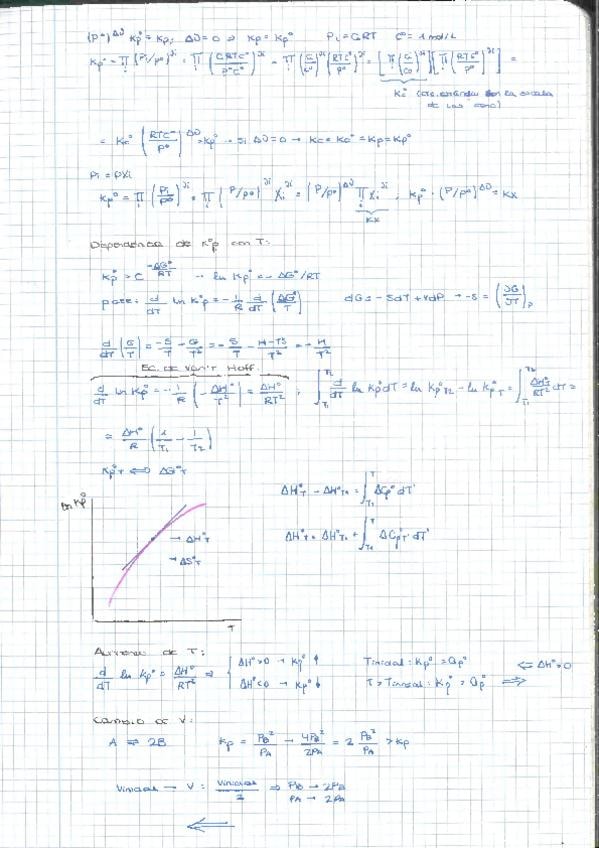 (P°)^Δν Kp° = Kp; Δν=0 → Kp = Kp° Pi = CiRT C° = 1 mol/L
Kp° = ∏i (Pi/P°)^νi = ∏i (CiRTC°/P°C°)^νi = ∏i (Ci/C°)^νi (RTC°/P°)^νi = [∏i (Ci/C°)^νi][∏i (RTC°/P°)^νi] =
Kc° (cte. estándar en la escala
de las conc)
= Kc° (RTC°/P°)^Δν = Kp° → Si Δν=0 → Kc = Kc° = Kp = Kp°
Pi = PXi
Kp° = ∏i (Pi/P°)^νi = ∏i (P/P°)^νi Xi^νi = (P/P°)^Δν ∏i Xi^νi, Kp° · (P/P°)^Δν = Kx
Kx
Dependencia de Kp° con T:
Kp° = e^(-ΔG°/RT) → ln Kp° = -ΔG°/RT
P=cte: d/dT ln Kp° = -1/R d/dT (ΔG°/T) dG = -SdT + VdP → -S = (∂G/∂T)P
d/dT (G/T) = -S/T - G/T² = -S/T - H-TS/T² = -H/T²
Ec. de Van't Hoff.
d/dT ln Kp° = -1/R (-ΔH°/T²) = ΔH°/RT² ; ∫T1^T2 d/dT ln Kp° dT = ln Kp°T2 - ln Kp°T = ∫T1^T2 ΔH°/RT² dT =
= ΔH°/R (1/T1 - 1/T2)
Kp°T ⇔ ΔG°T
ΔH°T - ΔH°T1 = ∫T1^T ΔCp° dT'
ln Kp°
→ ΔH°T
ΔH°T = ΔH°T1 + ∫T1^T ΔCp°T' dT'
→ ΔS°T
T
Aumento de T:
d/dT ln Kp° = ΔH°/RT² ⇒ { ΔH°>0 → Kp° ↑ Tinicial: Kp° = Qp° ⇐ ΔH°>0
ΔH°<0 → Kp° ↓ T > Tinicial: Kp° > Qp° ⇒
Cambio de V:
A ⇌ 2B Kp = PB²/PA → 4PB²/2PA = 2 PB²/PA > Kp
Vinicial → V: Vinicial/2 ⇒ PB → 2PB
PA → 2PA
⇐